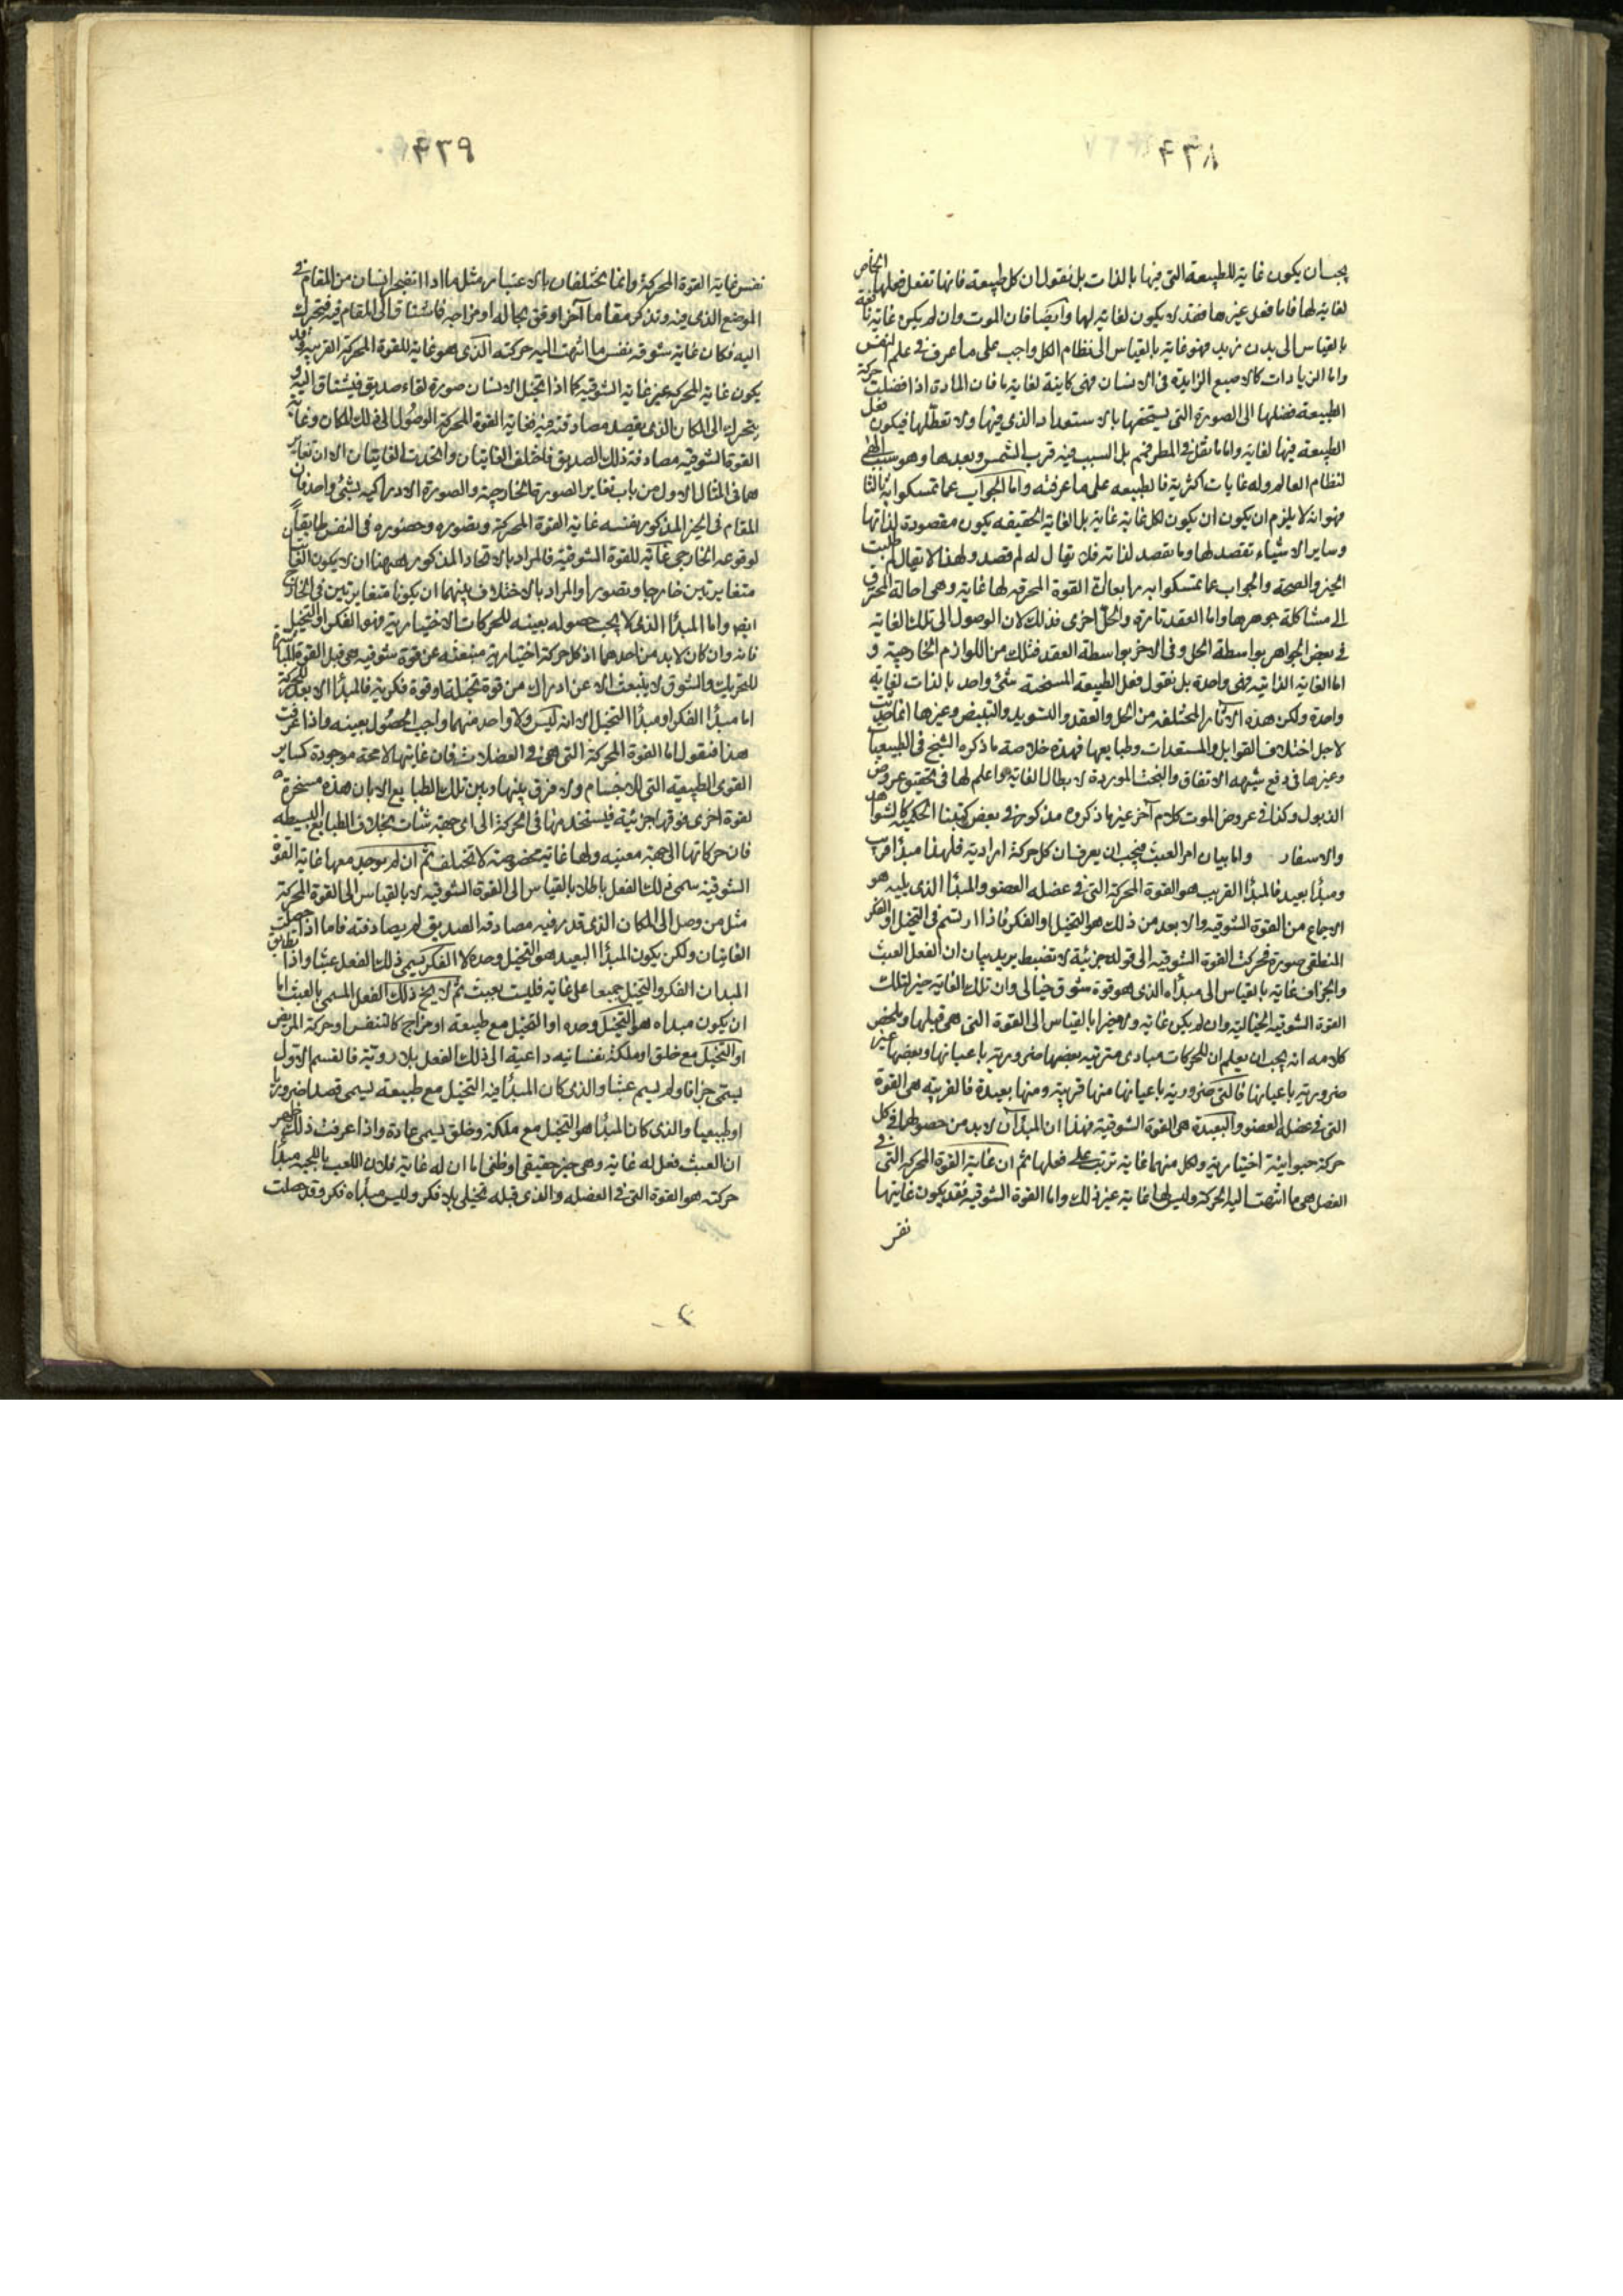 ٤٣٨
يجب ان يكون غاية للطبيعة التى فيها بالذات بل نقول ان كل طبيعة فانها تفعل فعلها الخاص
لغاية لها فاما فعل غيرها فقد لا يكون لغاية لها وايضا فان الموت وان لم يكن غاية نافعة
بالقياس الى بدن زيد فهو غاية بالقياس الى نظام الكل واجب على ما عرف فى علم النفس
واما الزيادات كالاصبع الزايدة فى الانسان فهى كاينة لغاية ما فان المادة اذا افضلت حركة
الطبيعة فضلها الى الصورة التى يستحقها بالاستعداد الذى فيها ولا تعطلها فيكون فعل
الطبيعة فيها لغاية واما ما نقل فى المطر فمم بل السبب فيه قرب الشمس وبعدها وهو سبب الطى
لنظام العالم وله غايات اكثرية فالطبيعه على ما عرفته واما الجواب عما تمسكوا به ثالثا
فهو انه لا يلزم ان يكون ان يكون لكل غاية غاية بل الغاية الحقيقه يكون مقصودة لذاتها
وساير الاشياء تقصد لها وما يقصد لذاته فلا يقال له لم قصد ولهذا لا يقال لم طلبت
الخير والصحة والجواب عما تمسكوا به رابعا ان القوة المحرقة لها غاية وهى احالة المحترق
الى مشاكلة جوهرها واما العقد تارة والحل اخرى فذلك لان الوصول الى تلك الغاية
فى بعض الجواهر بواسطة الحل وفى الاخر بواسطة العقد فتلك من اللوازم الخارجية و
اما الغاية الذاتية فهى واحدة بل نقول فعل الطبيعة المسخنة شئ واحد بالذات لغاية
واحدة ولكن هذه الآثار المختلفة من الحل والعقد والتسويد والتبييض وغيرها انما حدثت
لاجل اختلاف القوابل والمستعدات وطبايعها فهذه خلاصة ما ذكره الشيخ فى الطبيعيات
وغيرها فى دفع شبهه الاتفاق والبخت الموردة لابطال الغاية واعلم لها فى تحقيق عروض
الذبول وكذا فى عروض الموت كلام آخر غير ما ذكروه مذكورة فى بعض كتبنا الحكمية كالشواهد
والاسفار واما بيان امر العبث فيجب ان يعرف ان كل حركة ارادية فلهذا مبدأ قريب
ومبدأ بعيد فالمبدأ القريب هو القوة المحركة التى فى عضلة العضو والمبدأ الذى يليه هو
الاجماع من القوة الشوقيه والابعد من ذلك هو التخيل او الفكر فاذا ارتسم فى التخيل او الفكر
المنطقى صورة فحركت القوة الشوقيه الى قوله جزئية لا تضبط يريد بيان ان الفعل العبث
والجزاف غاية بالقياس الى مبدأه الذى هو قوة شوق خيالى وان تلك الغاية خير لتلك
القوة الشوقيه الخيالية وان لم يكن غاية ولا خيرا بالقياس الى القوة التى هى قبلها ويلخص
كلامه انه يجب ان يعلم ان للحركات مبادى مترتبه بعضها ضرورية باعيانها وبعضها غير
ضرورية باعيانها فالتى ضرورية باعيانها منها قريبة ومنها بعيدة فالقريبه هى القوة
التى فى عضلة العضو والبعيدة هى القوة الشوقية فهذا ان المبدأن لا بد من حصولهما فى كل
حركة حيوانية اختيارية ولكل منهما غاية ترتب على فعلها ثم ان غاية القوة المحركة التى فى
العضل هى ما انتهت اليه الحركة وليس لها غاية غير ذلك واما القوة الشوقيه فقد يكون غايتها
نفس
٤٣٩
نفس غاية القوة المحركة وانما يختلفان بالاعتبار مثل ما اذا انضجر انسان من المقام فى
الموضع الذى فيه وتذكر مقاما آخر اوفق بحاله او مزاجه فاشتاق الى المقام فيه فتحرك
اليه فكان غاية شوقه نفس ما انتهت اليه حركته الذى هو غاية للقوة المحركة القريبه وقد
يكون غاية المحركة غير غاية الشوقيه كما اذا تخيل الانسان صورة لقاء صديق فيشتاق اليه و
يتحرك الى المكان الذى يقصد مصادقته فيه فغاية القوة المحركة الوصول الى ذلك المكان وغاية
القوة الشوقيه مصادفة ذلك الصديق فاختلف الغايتان واتحدت الغايتان الا ان تغاير
هما فى المثال الاول من باب تغاير الصورة الخارجية والصورة الادراكيه لشئ واحد فان
المقام فى الحيز المذكور نفسه غاية القوة المحركة وتصوره وحضوره فى النفس طابقا
لوقوعه الخارجى غاية للقوة الشوقيه فالمراد بالاتحاد المذكور ههنا ان لا يكون الغايتا
متغايرتين خارجا وتصورا والمراد بالاختلاف بينهما ان يكونا متغايرتين فى الخارج
ايضا واما المبدأ الذى لا يجب حصوله بعينه للحركات الاختيارية فهو الفكر او التخيل
فانه وان كان لا بد من احدهما اذ كل حركة اختيارية منبعثه عن قوة شوقيه هى قبل القوة المباشرة
للتحريك والشوق لا ينبعث الا عن ادراك من قوة تخيلية او قوة فكرية فالمبدأ الابعد للحركة
اما مبدأ الفكر او مبدأ التخيل الا انه ليس ولا واحد منهما واجب الحصول بعينه واذا عرفت
هذا فنقول اما القوة المحركة التى هى فى العضلات فان غايتها لا محة موجودة كساير
القوى الطبيعية التى للاجسام ولا فرق بينها وبين تلك الطبايع الا بان هذه مسخرة
لقوة اخرى فوقها جزئية فيستخدمها فى الحركة الى اى جهة شئات بخلاف الطبايع البسيطه
فان حركاتها الى جهة معينه ولها غاية مخصوصة لا تختلف ثم ان لم يوجد معها غاية القوة
الشوقية سمى ذلك الفعل باطلا بالقياس الى القوة الشوقيه لا بالقياس الى القوة المحركة
مثل من وصل الى المكان الذى قدر فيه مصادقة الصديق لم يصادفه فاما اذا حصلت
الغايتان ولكن يكون المبدأ البعيد هو التخيل وحده لا الفكر فيسمى ذلك الفعل عبثا واذا تطابق
المبدان الفكر والتخيل جميعا على غاية فليست بعبث ثم لا يخ ذلك الفعل المسمى بالعبث اما
ان يكون مبداه هو التخيل وحده او التخيل مع طبيعة او مزاج كالتنفس او حركة المريض
او التخيل مع خلق او ملكة نفسانيه داعية الى ذلك الفعل بلا روية فالقسم الاول
يسمى جزافا ولم يسم عبثا والذى كان المبدأ فيه التخيل مع طبيعه يسمى قصدا ضروريا
او طبيعيا والذى كان المبدأ هو التخيل مع ملكة وخلق يسمى عادة واذا عرفت ذلك ظهر
ان العبث فعل له غاية وهى خير حقيقى او ظنى اما ان له غاية فلان اللعب باللحية مبدأ
حركته هو القوة التى فى العضله والذى قبله تخيلى بلا فكر وليس مبدأه فكر وقد حصلت